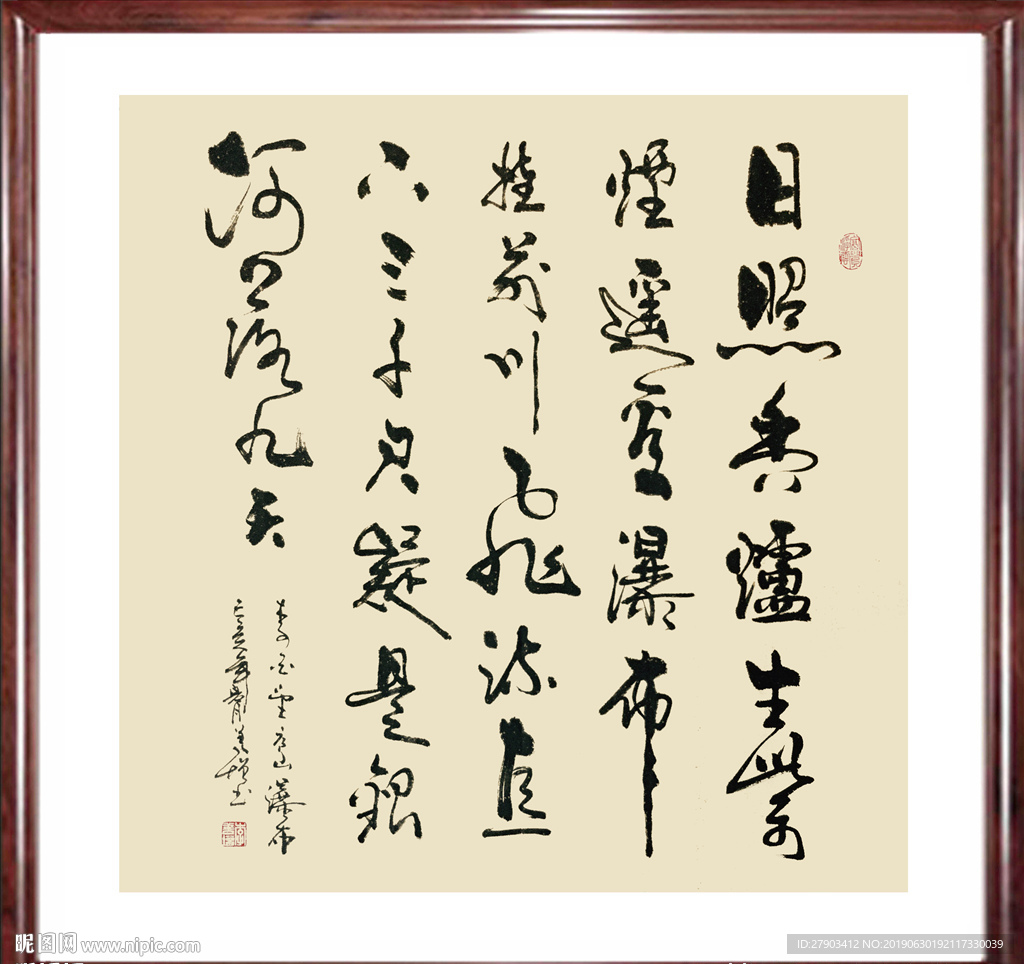 日照香爐生紫
煙遥看瀑布
挂前川飛流直
下三千尺疑是銀
河落九天
李白望庐山瀑布
美增书
昵图网 www.nipic.com
ID:27903412 NO:20190630192117330039